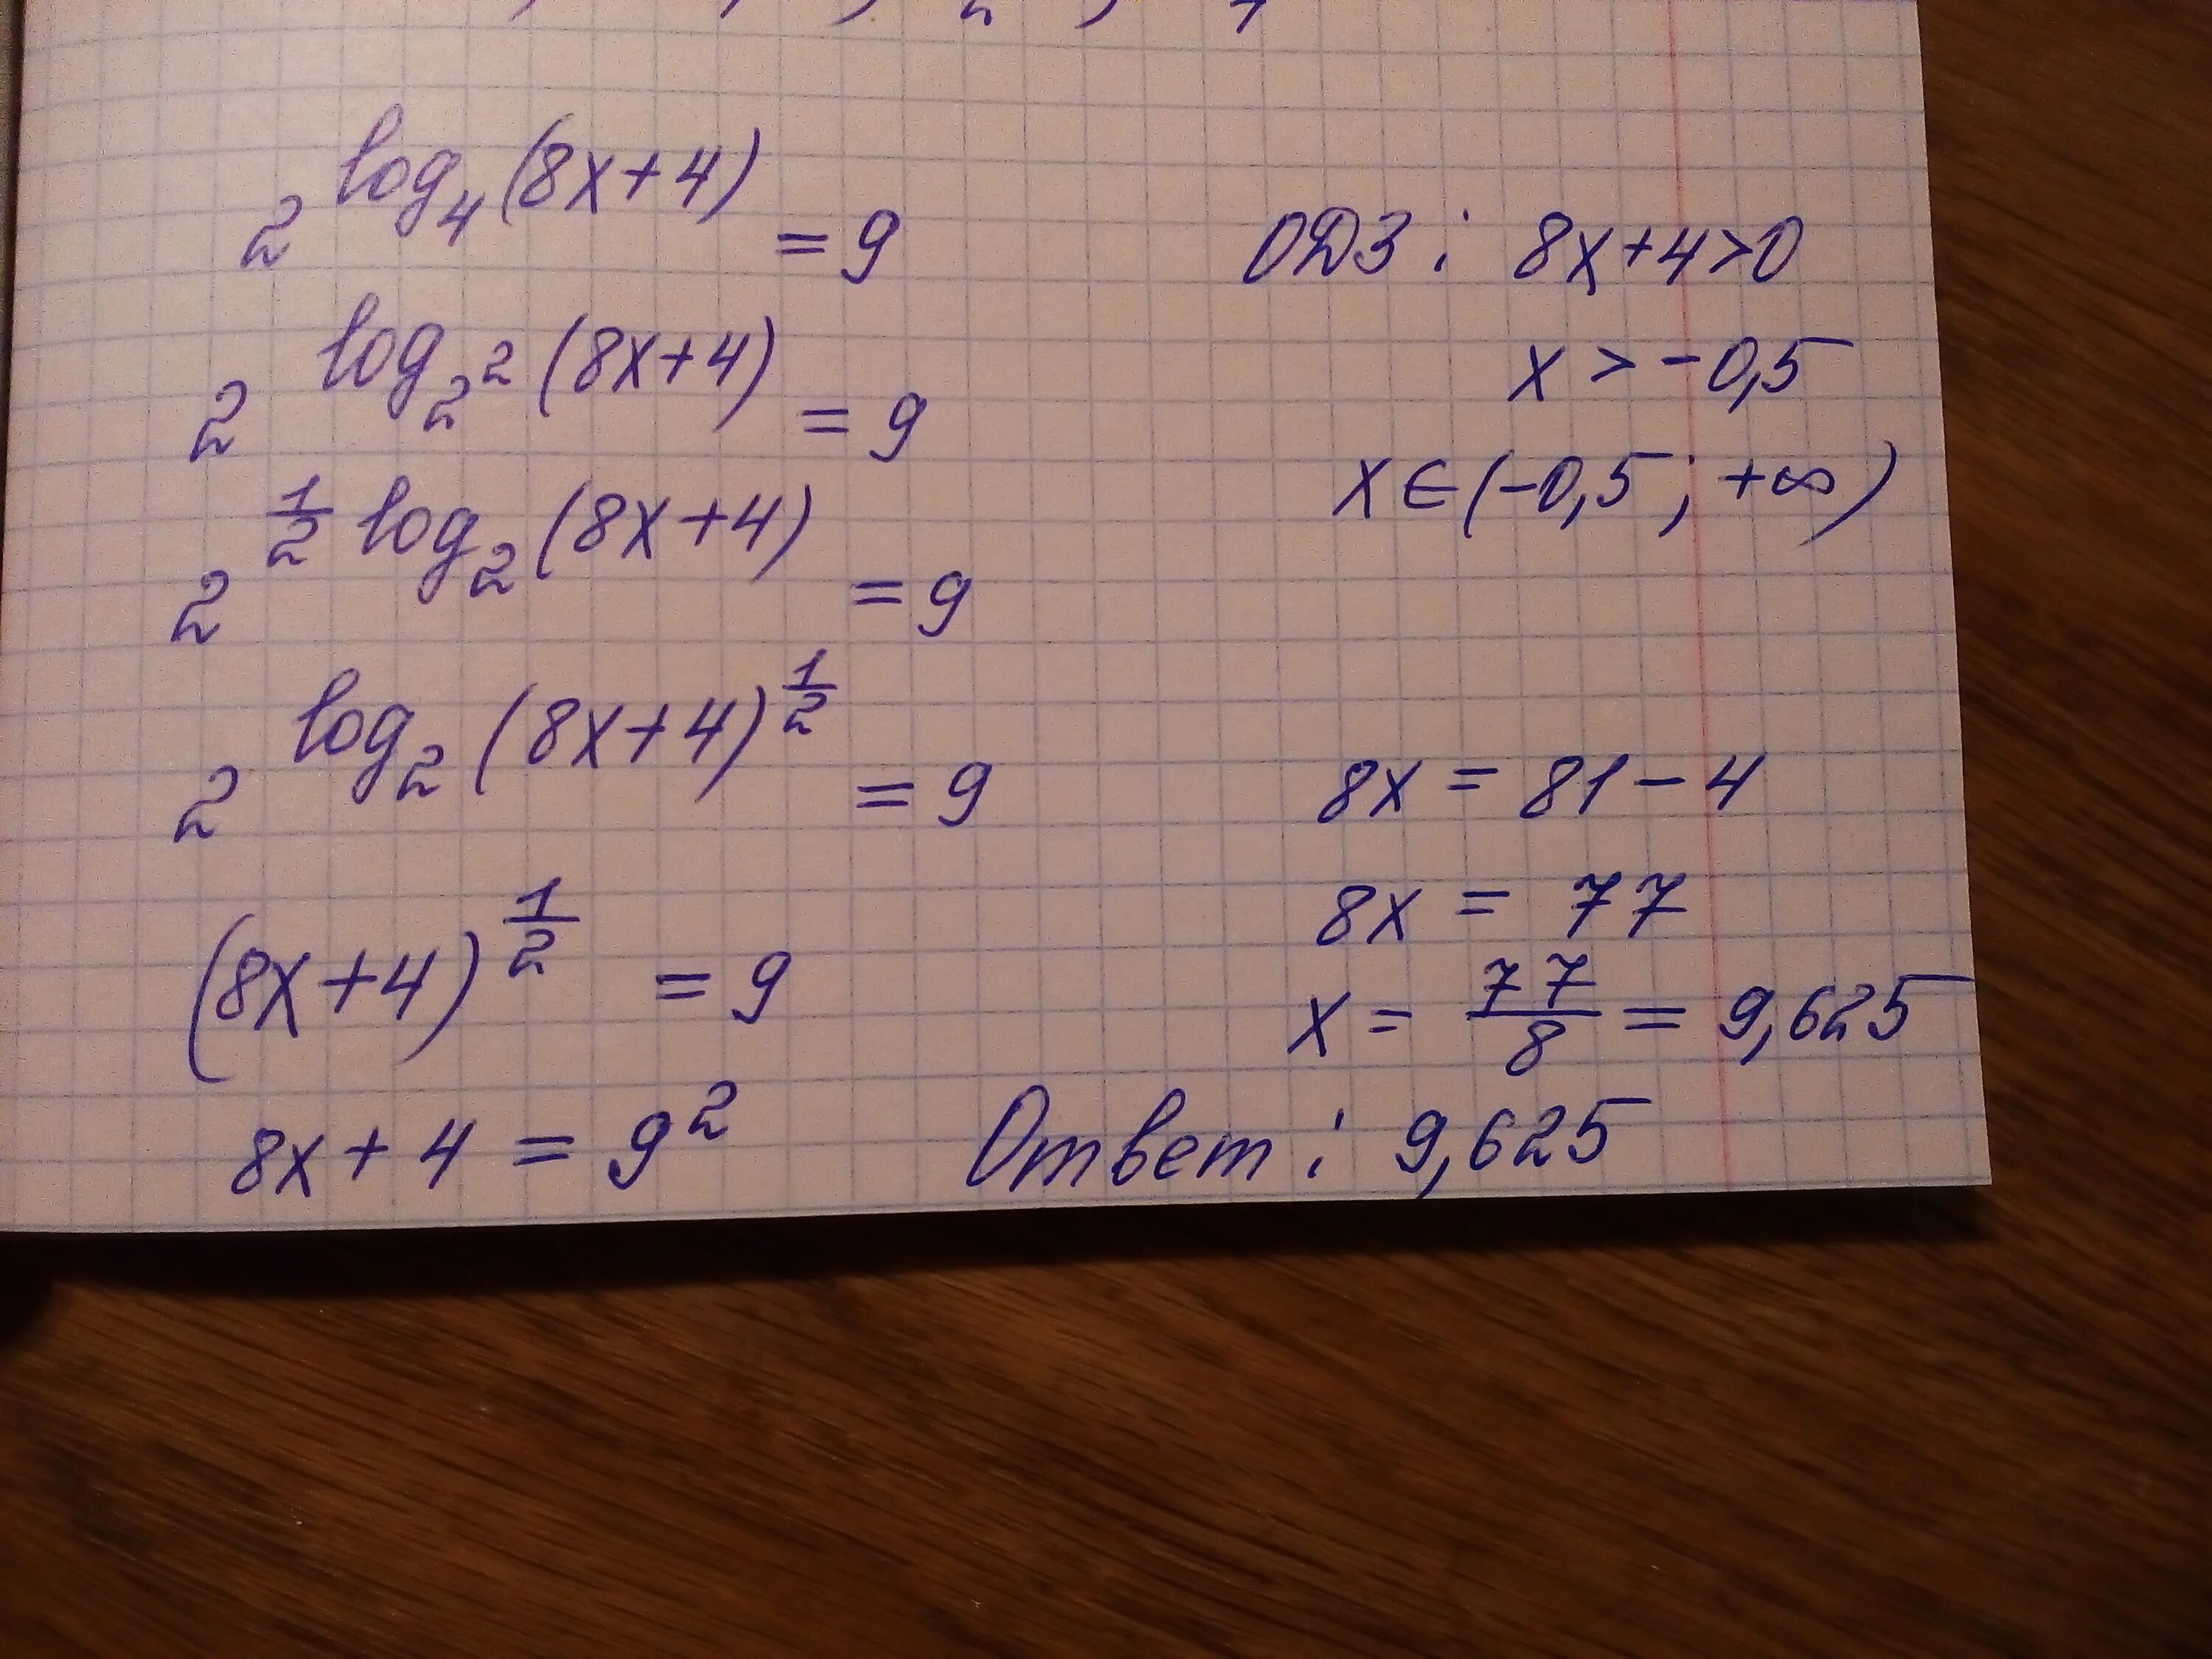 2^(log₄(8x+4)) = 9
2^(log_(2²)(8x+4)) = 9
2^(½ log₂(8x+4)) = 9
2^(log₂(8x+4)^(½)) = 9
(8x+4)^(½) = 9
8x + 4 = 9²
ОДЗ: 8x+4>0
x > -0,5
x ∈ (-0,5; +∞)
8x = 81 - 4
8x = 77
x = 77/8 = 9,625
Ответ: 9,625